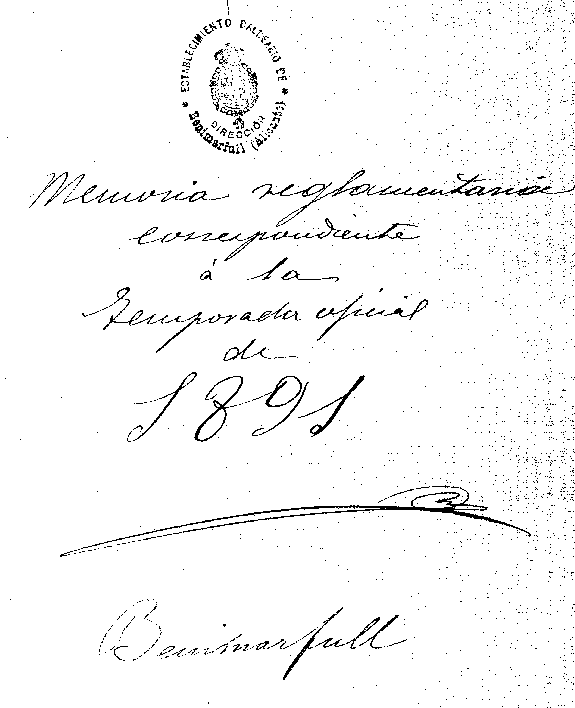 ESTABLECIMIENTO BALNEARIO DE
DIRECCIÓN
Benimarfull (Alicante)
Memoria reglamentaria
correspondiente
á la
temporada oficial
de
1891
Benimarfull